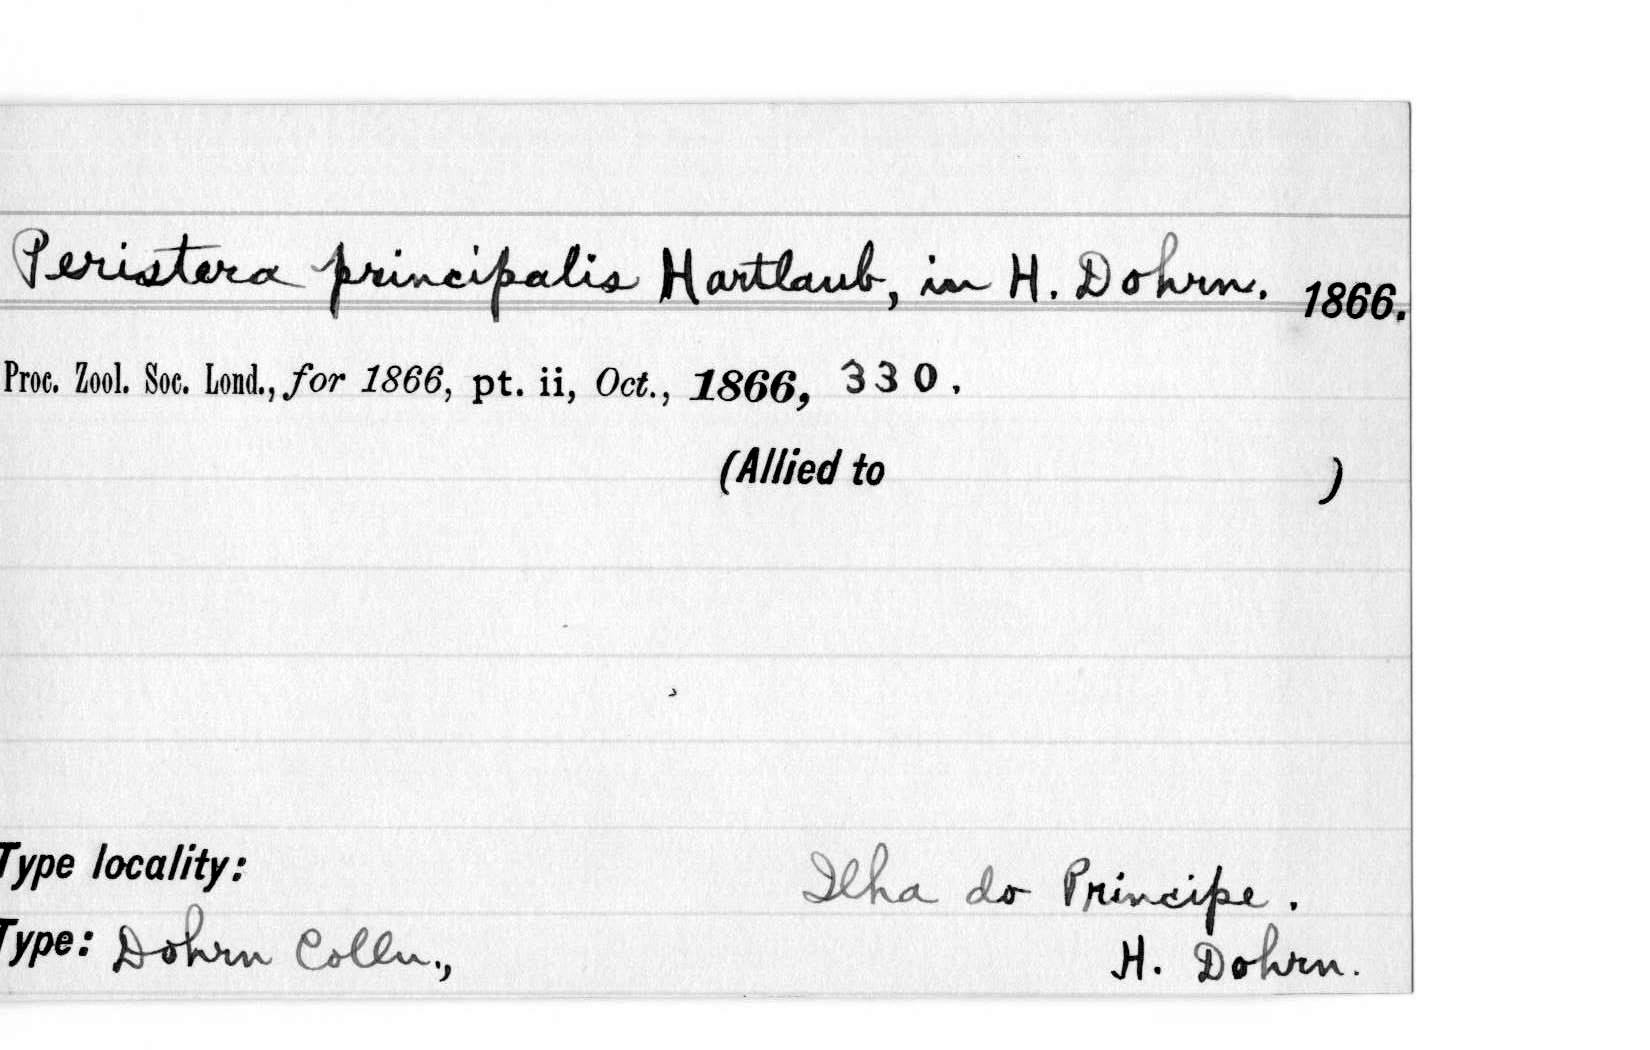 Peristera principalis Hartlaub, in H. Dohrn. 1866.
Proc. Zool. Soc. Lond., for 1866, pt. ii, Oct., 1866, 330.
(Allied to )
Type locality: Ilha do Principe.
Type: Dohrn Colln., H. Dohrn.